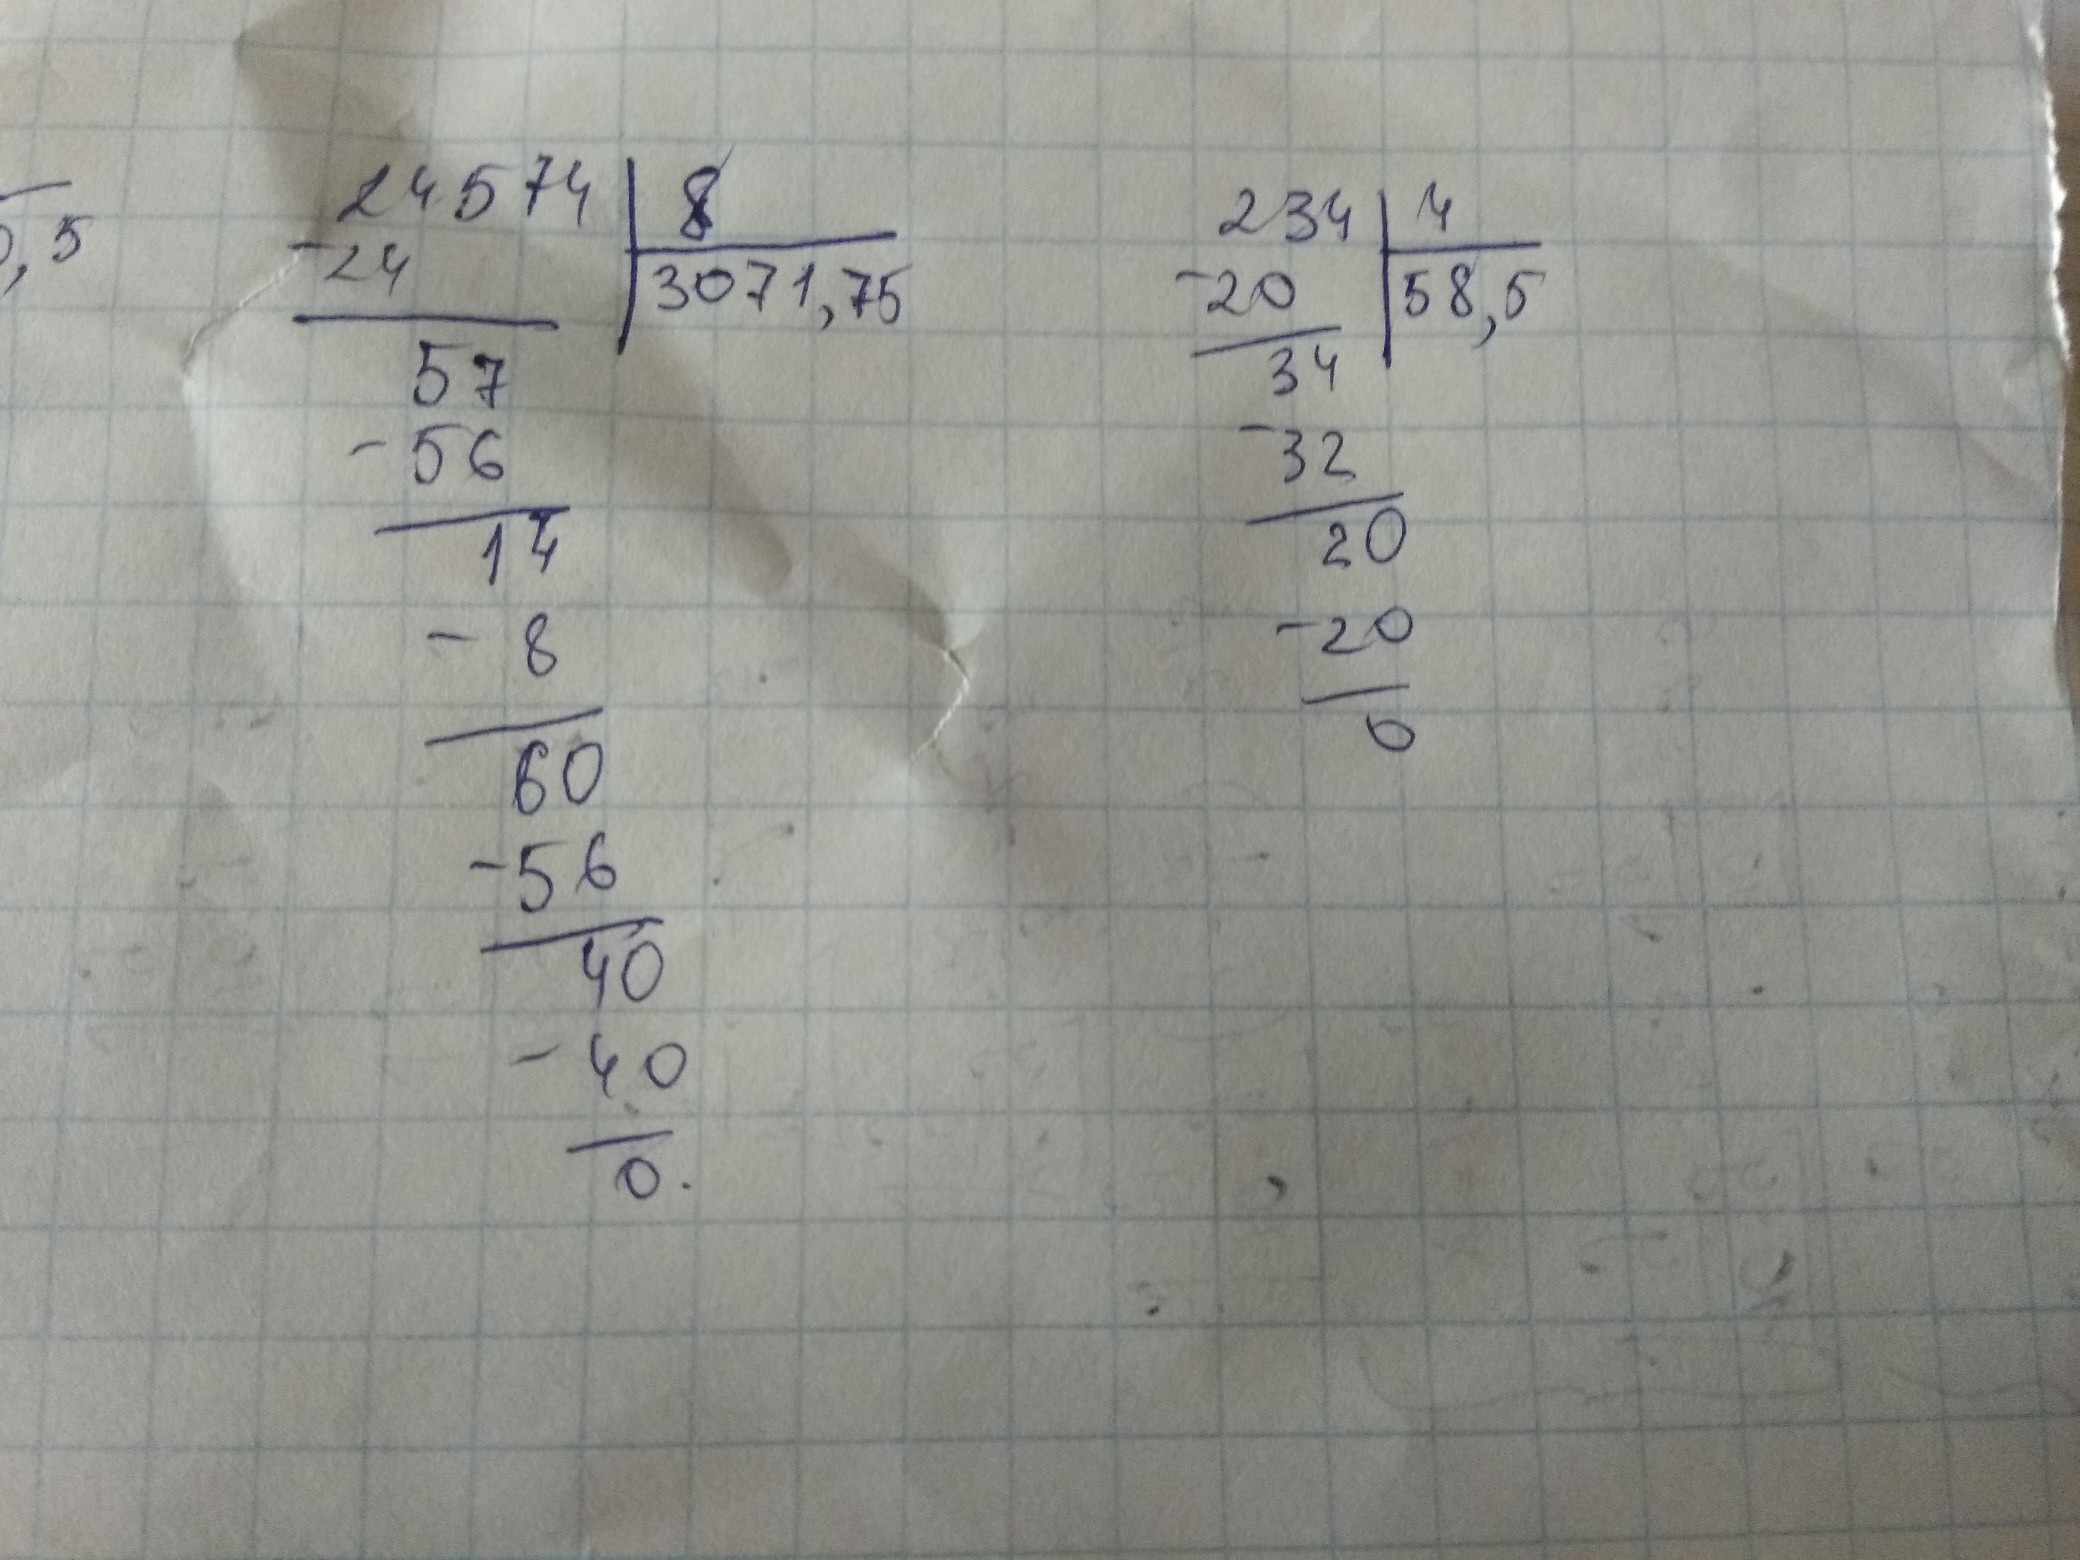 0,5
24574 8
-24 3071,75
57
-56
14
- 8
60
-56
40
- 40
0.
234 4
-20 58,5
34
-32
20
-20
0